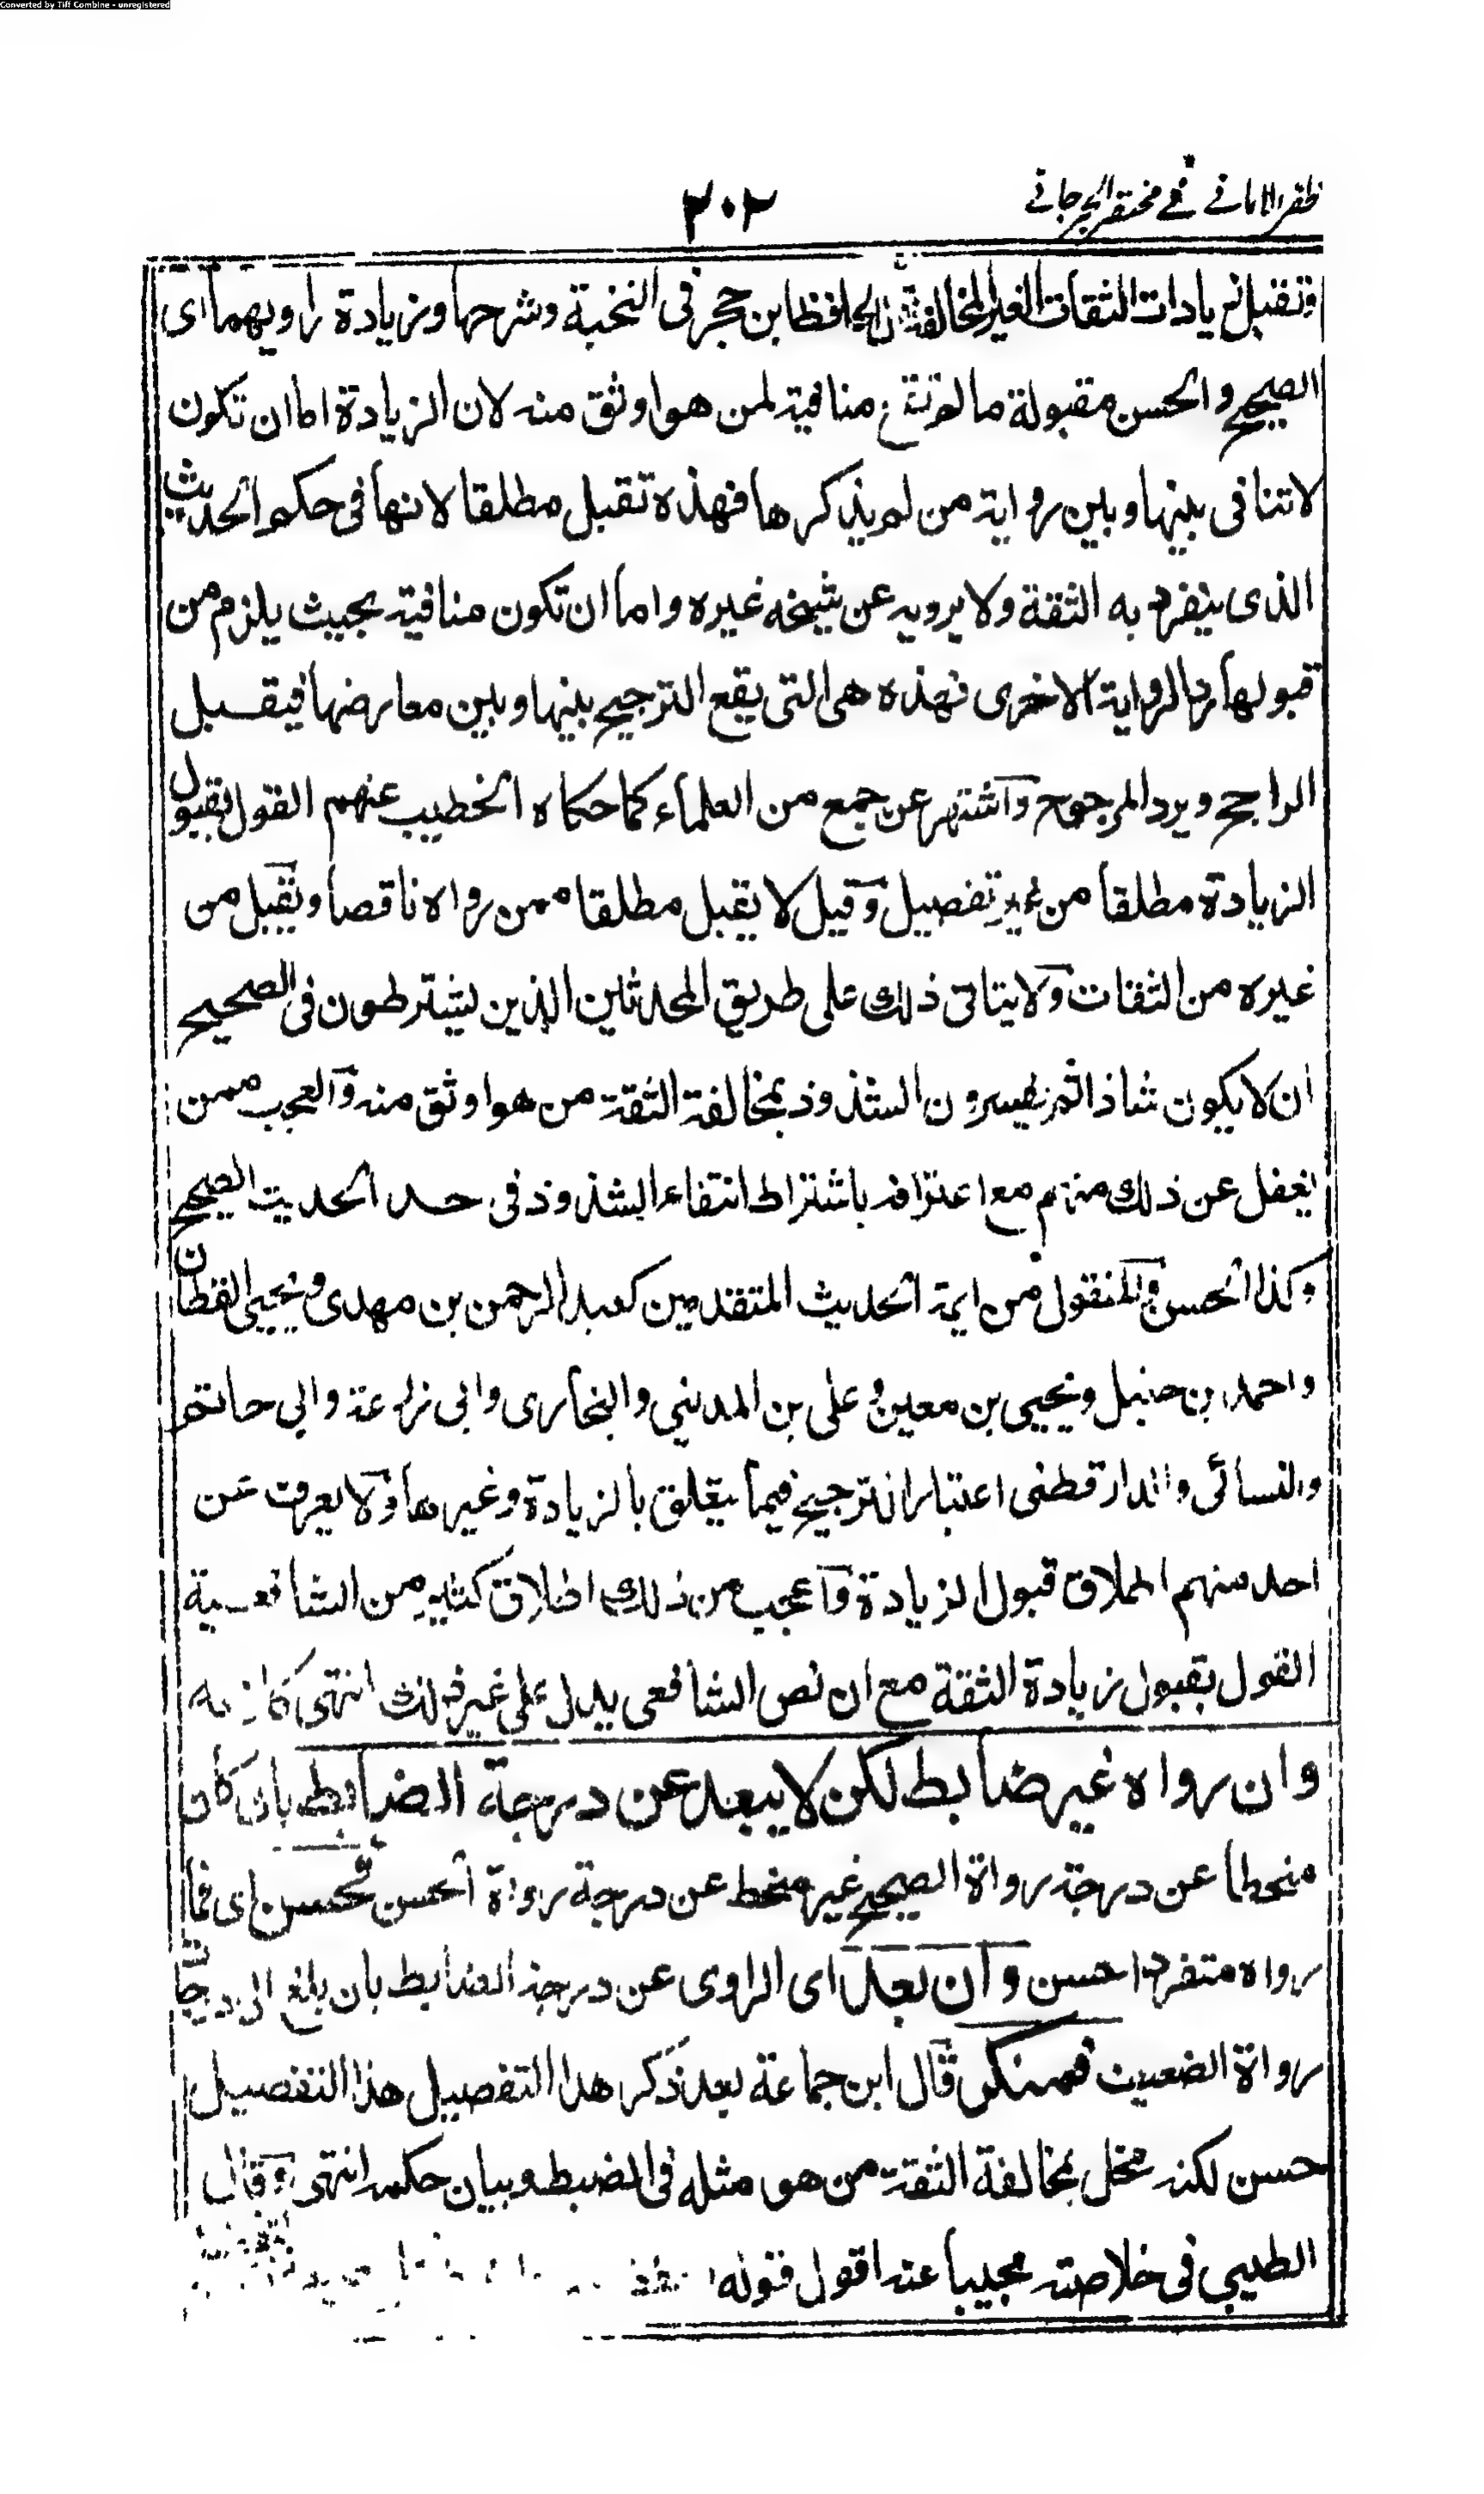 Converted by Tiff Combine - unregistered
ظفر الامانی فی مختصر الجرجانی
۲۰۲
وتقبل زيادات الثقات الغير المخالفة الحافظ ابن حجر فى النخبة وشرحها وزيادة راويهما اى
الصحيح والحسن مقبولة ما لم تقع منافية لمن هو اوثق منه لان الزيادة اما ان تكون
لا تنافى بينها وبين رواية من لم يذكرها فهذه تقبل مطلقا لانها فى حكم الحديث
الذى ينفرد به الثقة ولا يرويه عن شيخه غيره واما ان تكون منافية بحيث يلزم من
قبولها رد الرواية الاخرى فهذه هى التى يقع الترجيح بينها وبين معارضها فيقبل
الراجح ويرد المرجوح واشتهر عن جمع من العلماء كما حكاه الخطيب عنهم القول بقبول
الزيادة مطلقا من غير تفصيل وقيل لا يقبل مطلقا ممن رواه ناقصا ويقبل من
غيره من الثقات ولا يتاتى ذلك على طريق المحدثين الذين يشترطون فى الصحيح
ان لا يكون شاذا ثم يفسرون الشذوذ بمخالفة الثقة من هو اوثق منه والعجب ممن
يغفل عن ذلك منهم مع اعترافه باشتراط انتفاء الشذوذ فى حد الحديث الصحيح
وكذا الحسن والمنقول من ايمة الحديث المتقدمين كعبد الرحمن بن مهدى ويحيى القطان
واحمد بن حنبل ويحيى بن معين وعلى بن المدينى والبخارى وابى زرعة وابى حاتم
والنسائى والدارقطنى اعتبار الترجيح فيما يتعلق بالزيادة وغيرها ولا يعرف عن
احد منهم اطلاق قبول الزيادة واعجب من ذلك اطلاق كثير من الشافعية
القول بقبول زيادة الثقة مع ان نص الشافعى يدل على غير ذلك انتهى كلامه
وان رواه غير ضابط لكن لا يبعد عن درجة الضابط بان كان
منحطا عن درجة رواة الصحيح غير منحط عن درجة رواة الحسن فحسن اى فما
رواه متفردا حسن وان بعد اى الراوى عن درجة الضابط بان بلغ الى درجات
رواة الضعيف فمنكر قال ابن جماعة بعد ذكر هذا التفصيل هذا التفصيل
حسن لكنه مخل بمخالفة الثقة من هو مثله فى الضبط وبيان حكمه انتهى وقال
الطيبى فى خلاصته مجيبا عنه اقول قوله